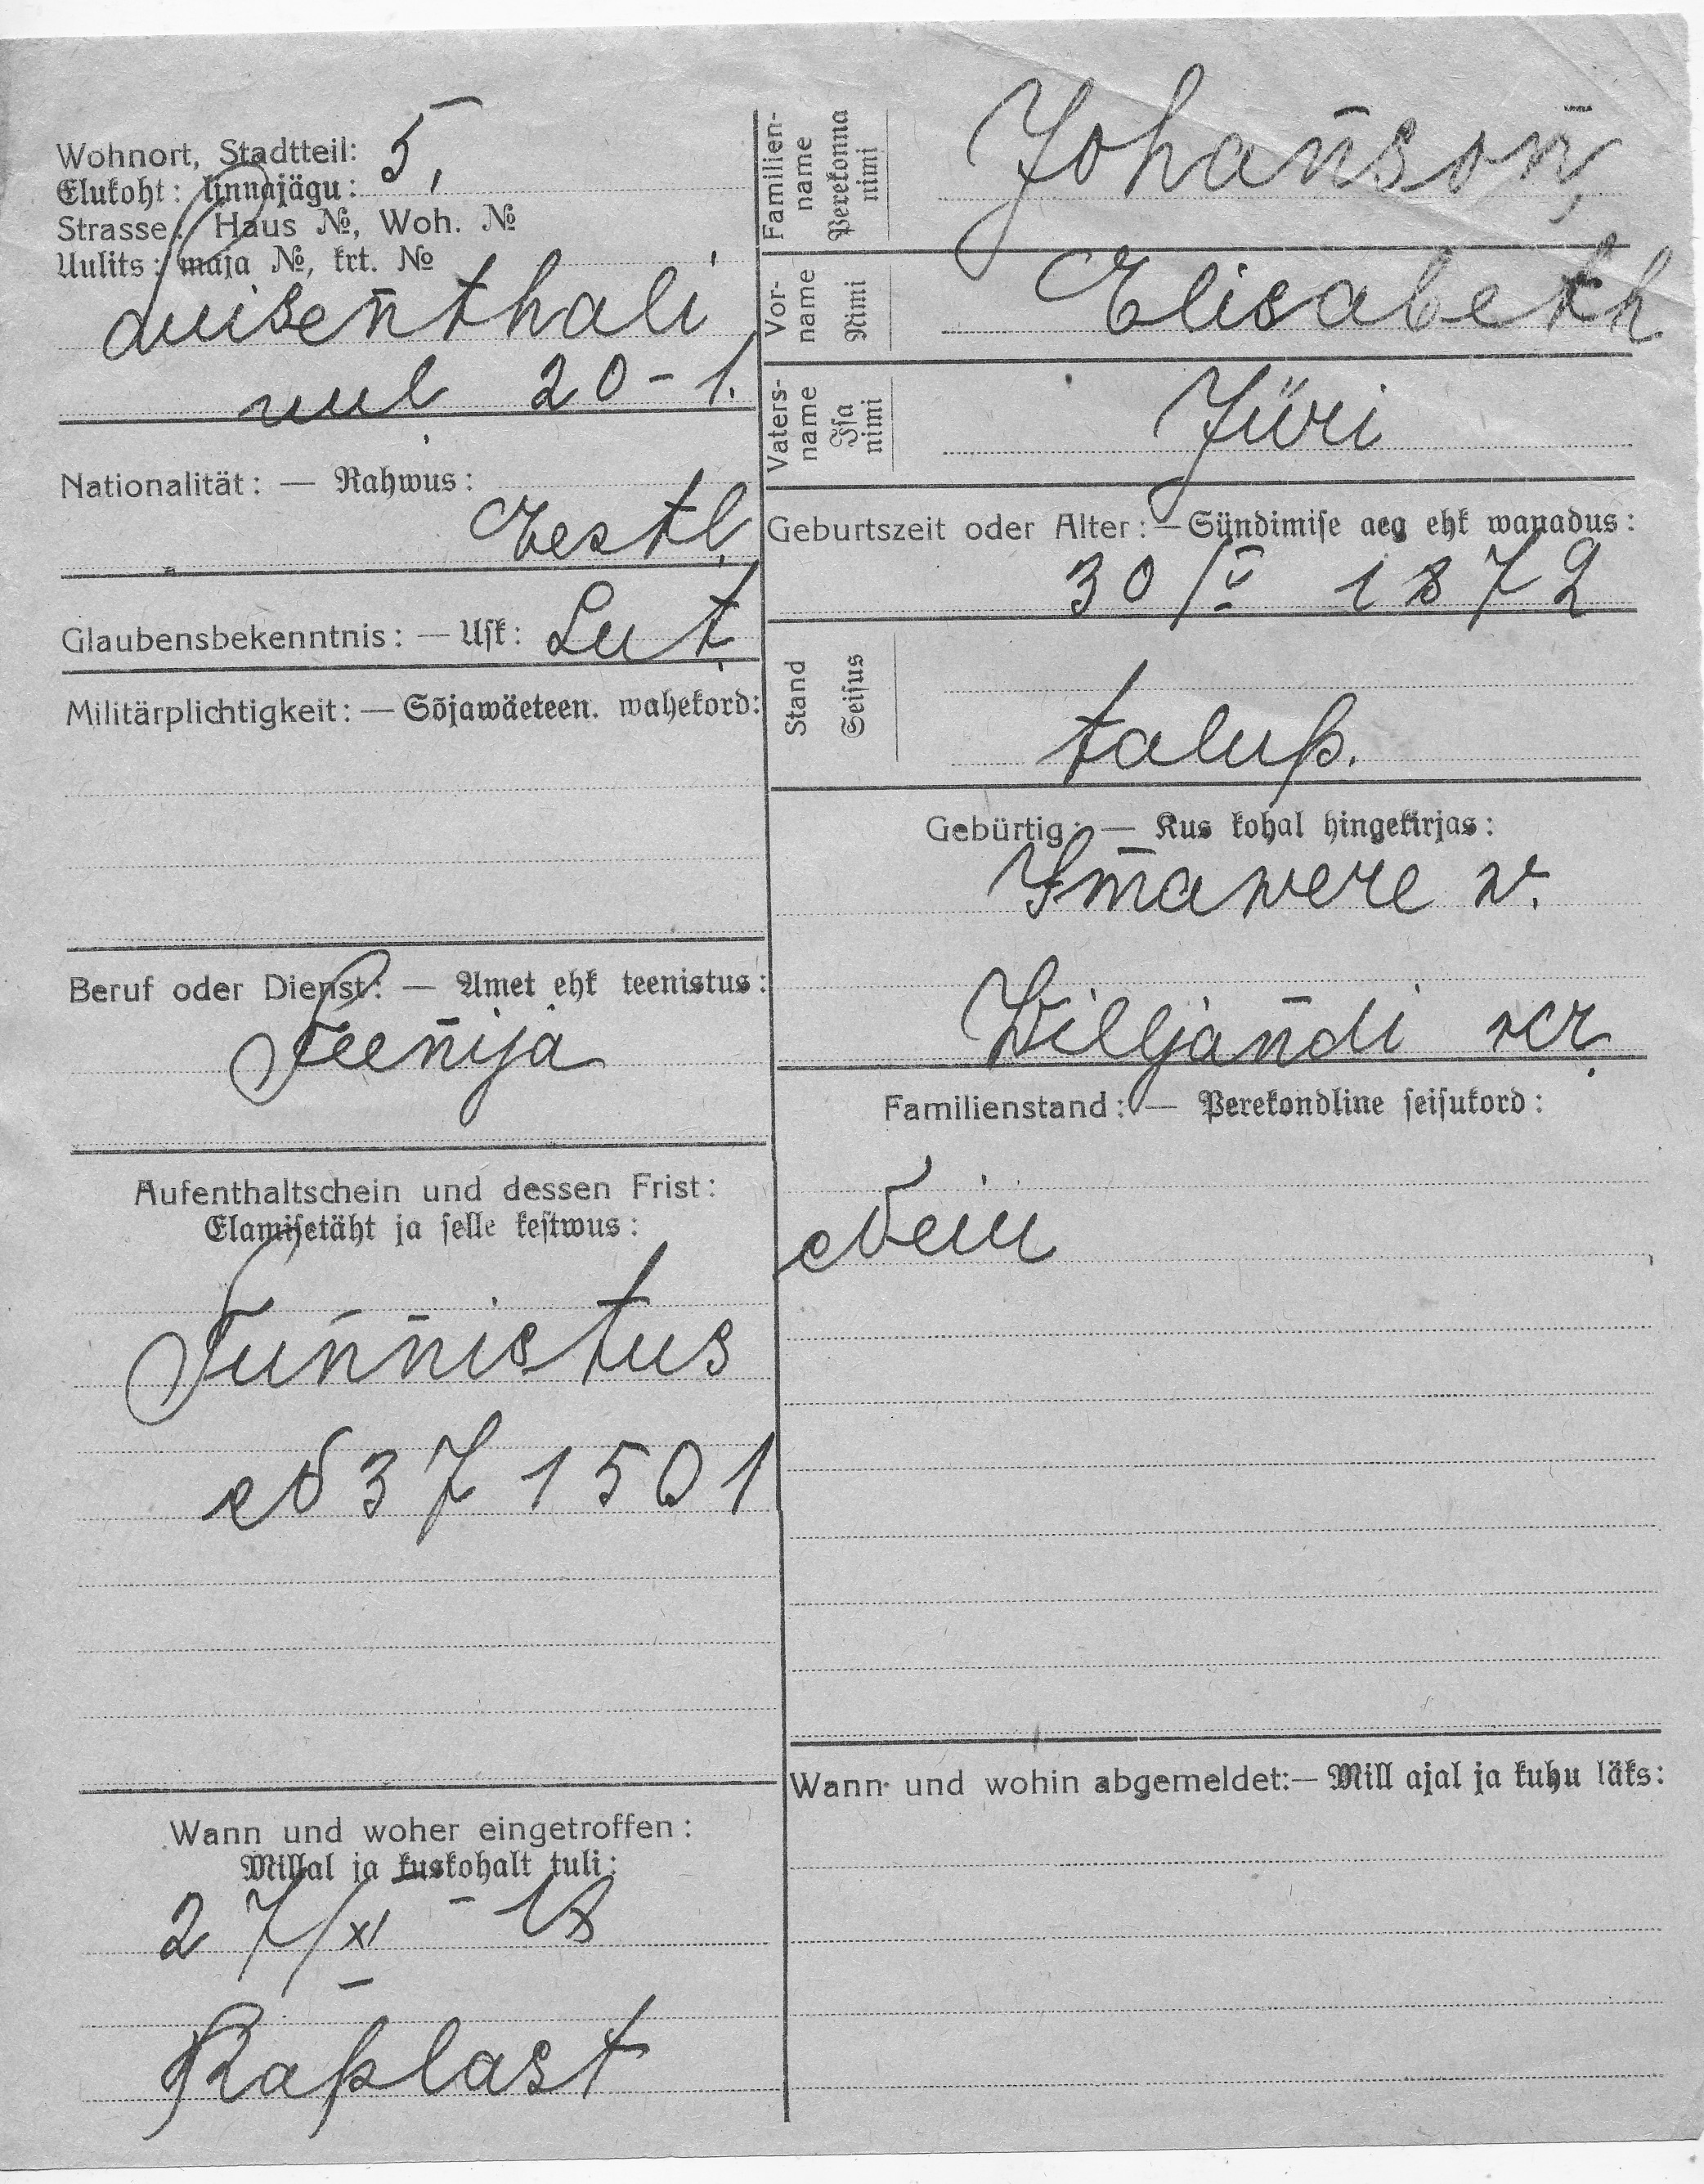 Wohnort, Stadtteil: 5,
Elukoht: linnajägu:
Strasse: Haus №, Woh. №
Uulits: maja №, krt. №
Luisenthali
uul 20-1.
Nationalität: — Rahwus:
Eestl.
Glaubensbekenntnis: — Usk: Lut.
Militärplichtigkeit: — Sõjawäeteen. wahekord:
Beruf oder Dienst: — Amet ehk teenistus:
Teenija
Aufenthaltschein und dessen Frist:
Elamisetäht ja selle kestwus:
Tunnistus
№ 371501
Wann und woher eingetroffen:
Millal ja kuskohalt tuli:
27/XI - 18
Raplast
Familien-
name
Perekonna
nimi
Johanson,
Vor-
name
Nimi
Elisabeth
Vaters-
name
Isa
nimi
Jüri
Geburtszeit oder Alter: — Sündimise aeg ehk wanadus:
30/V 1872
Stand
Seisus
talup.
Gebürtig: — Kus kohal hingekirjas:
Imawere w.
Wiljandi kr.
Familienstand: — Perekondline seisukord:
Wann und wohin abgemeldet: — Mill ajal ja kuhu läks: